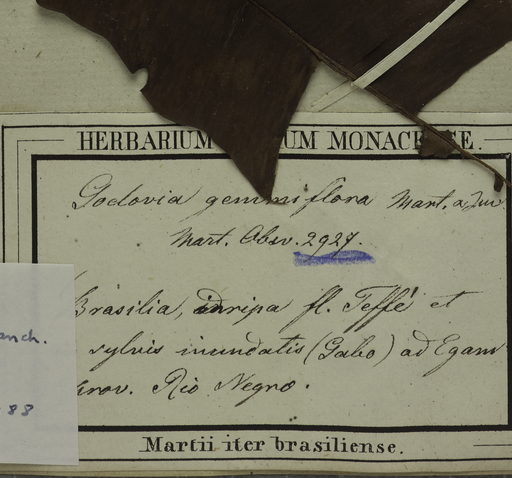 HERBARIUM UM MONAC SE.
Godovia gemmiflora Mart. a Zuc
Mart. Obsv. 2927.
Brasilia, in ripa fl. Teffé et
sylvis inundatis (Gabo) ad Egam
prov. Rio Negro.
anch.
88
Martii iter brasiliense.